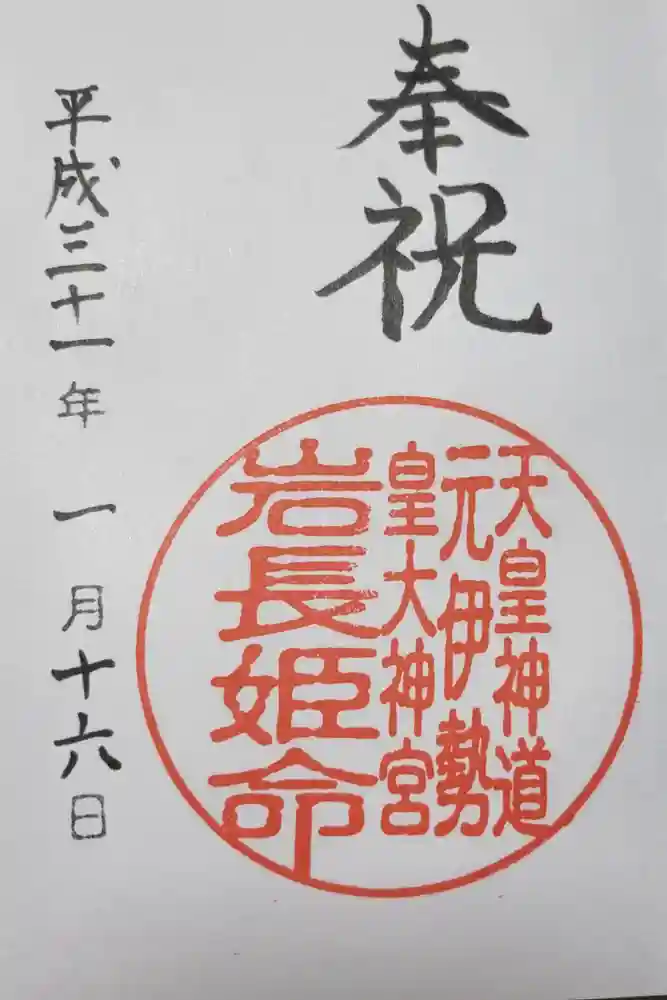 奉祝
天皇神道
元伊勢
皇大神宮
岩長姫命
平成三十一年 一月十六日